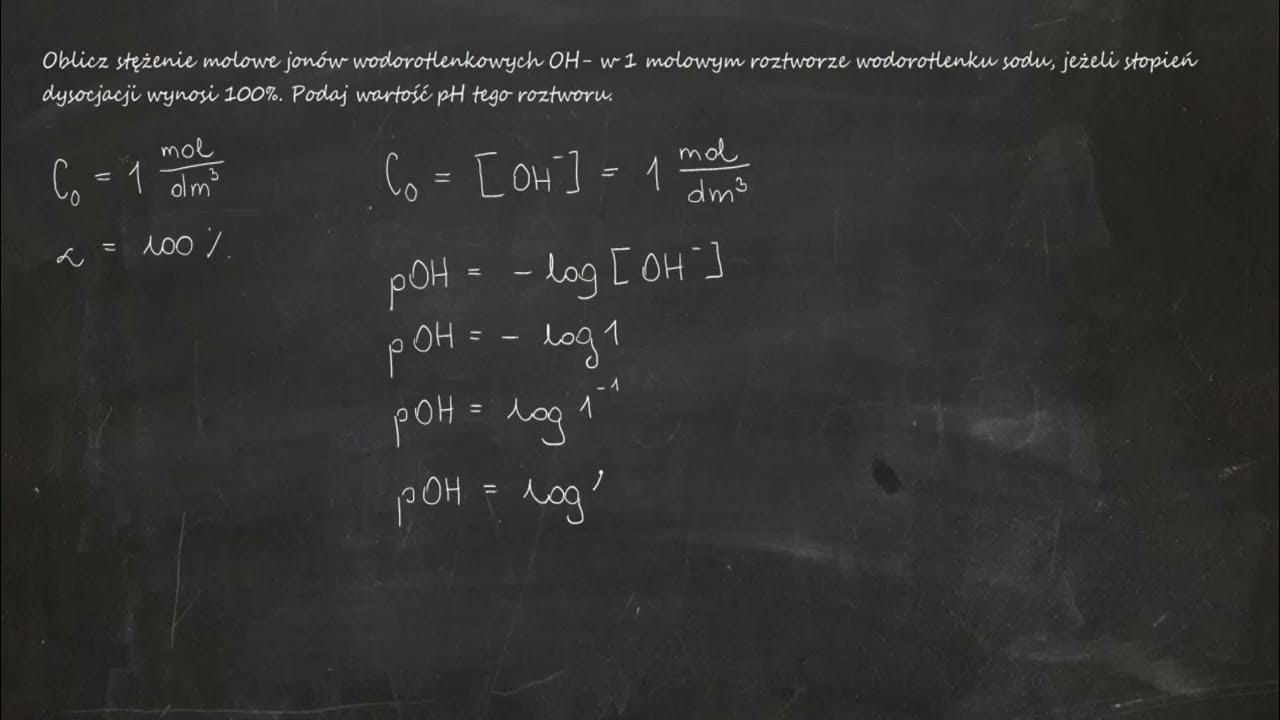 Oblicz stężenie molowe jonów wodorotlenkowych OH- w 1 molowym roztworze wodorotlenku sodu, jeżeli stopień
dysocjacji wynosi 100%. Podaj wartość pH tego roztworu.
C₀ = 1 mol/dm³
α = 100%
C₀ = [OH⁻] = 1 mol/dm³
pOH = - log [OH⁻]
pOH = - log 1
pOH = log 1⁻¹
pOH = log